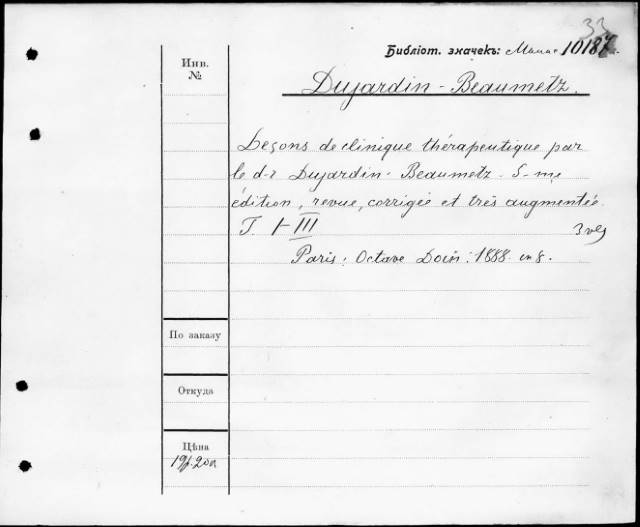 33
Библіот. значекъ: 10187
Инв.
№
Dujardin-Beaumetz.
Leçons de clinique thérapeutique par
le d-r Dujardin-Beaumetz. 5-me
édition, revue, corrigée et très augmentée.
T. I-III 3 vls
Paris: Octave Doin: 1888. in 8.
По заказу
Откуда
Цѣна